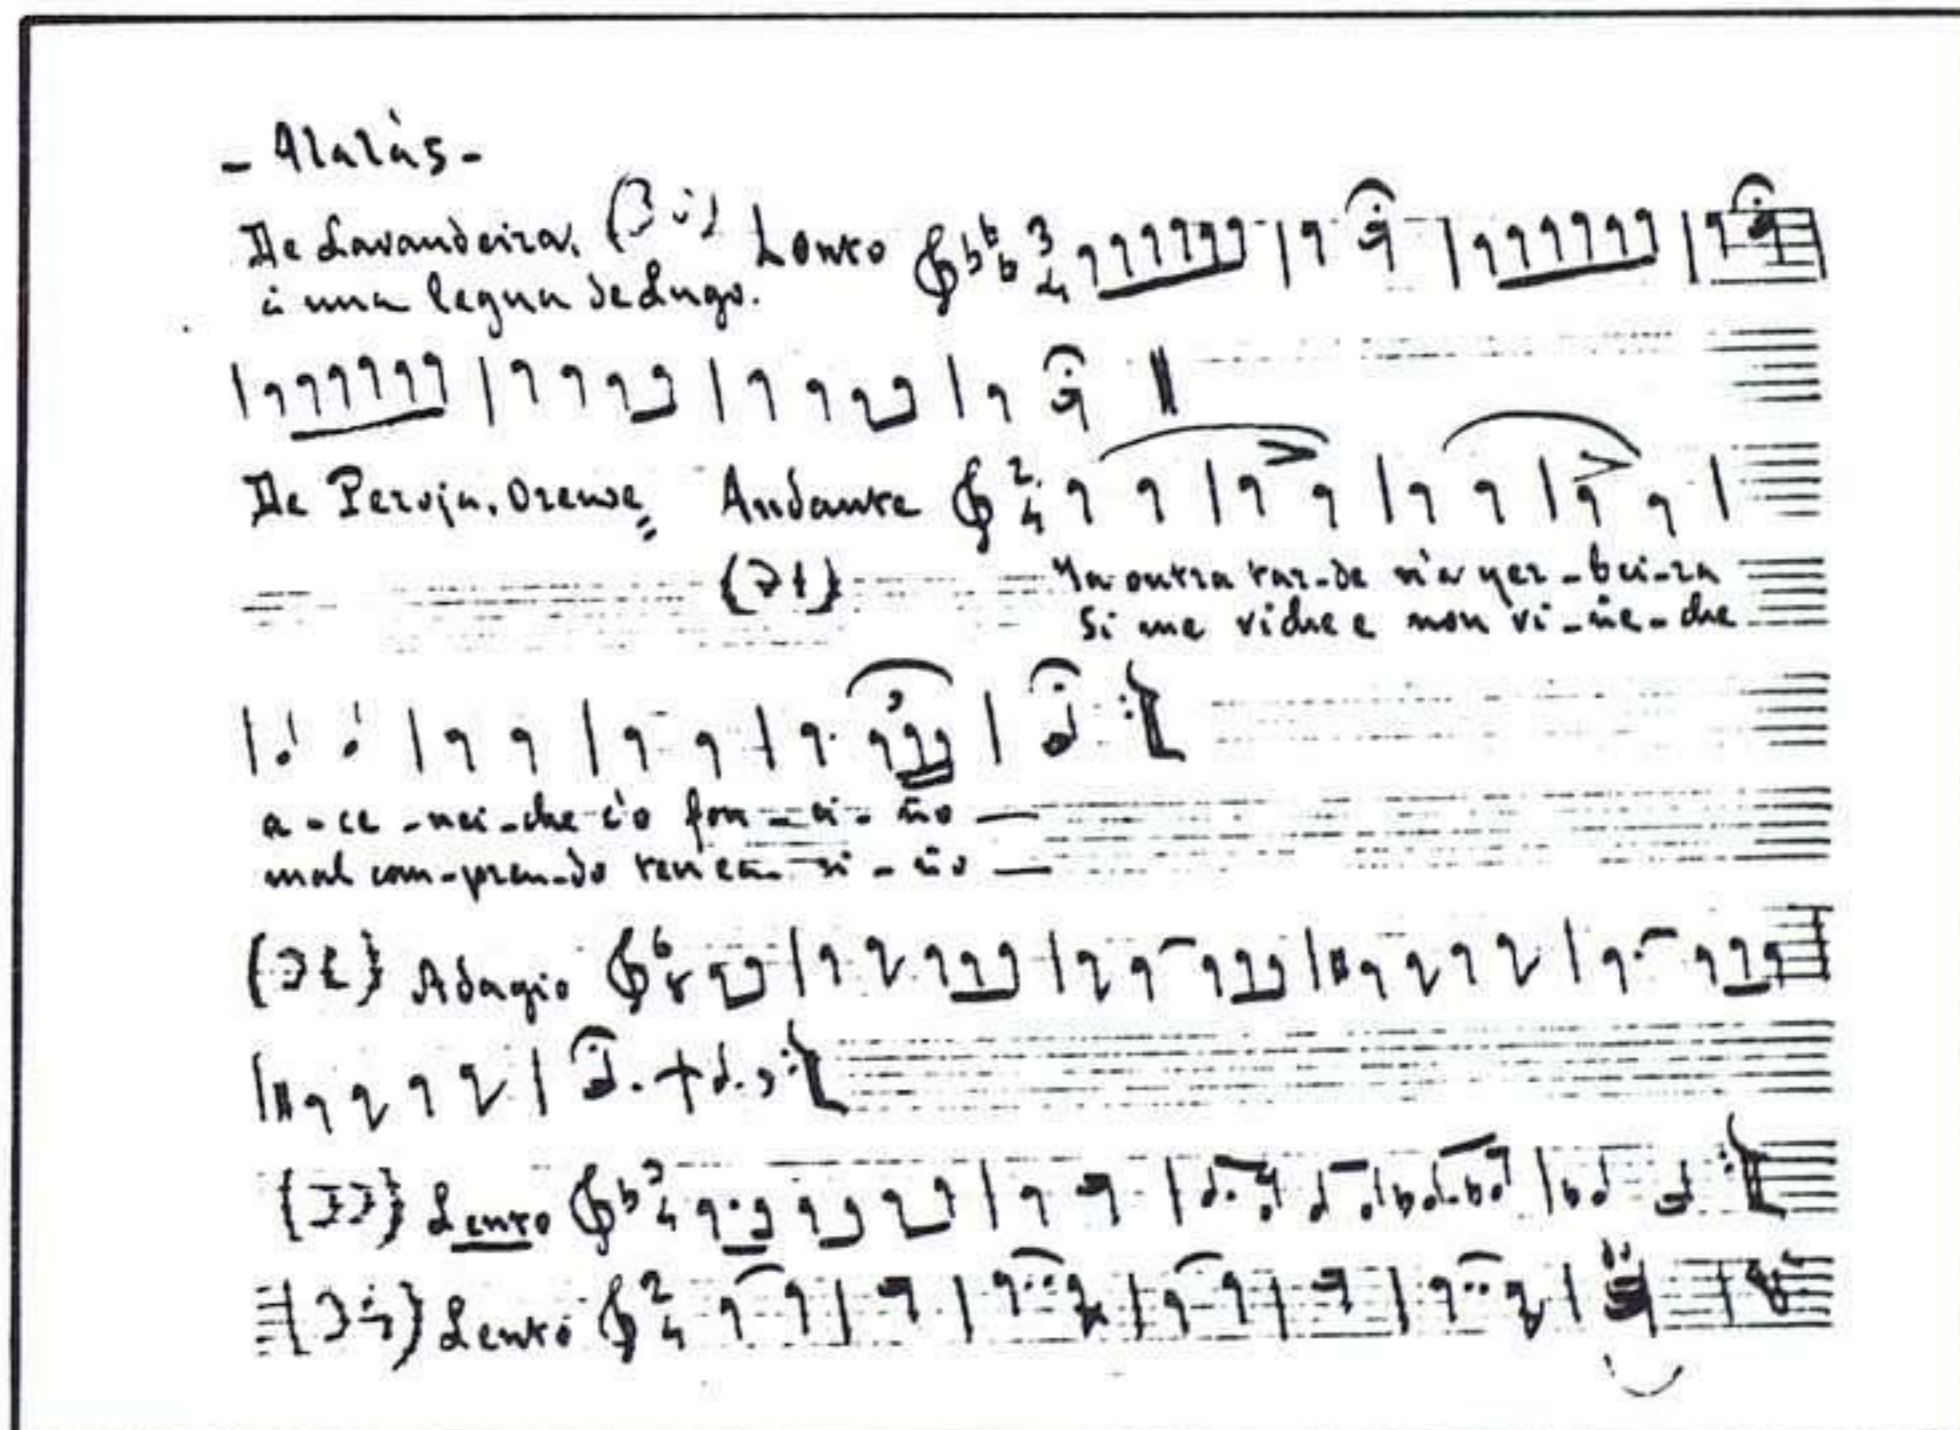 - Alalás -
De Lavandeira. (30) Lento 3 4
á una legua de Lugo.
De Peroja. Orense Andante 2 4
(31) N'a outra tar-de n'a yer-bei-ra
Si me viche e non vi-ñe-che
a-ce-nei-che c'o fou-ci-ño
mal com-pren-do
(32) Adagio
(33) Lento 3 4
(34) Lento 2 4